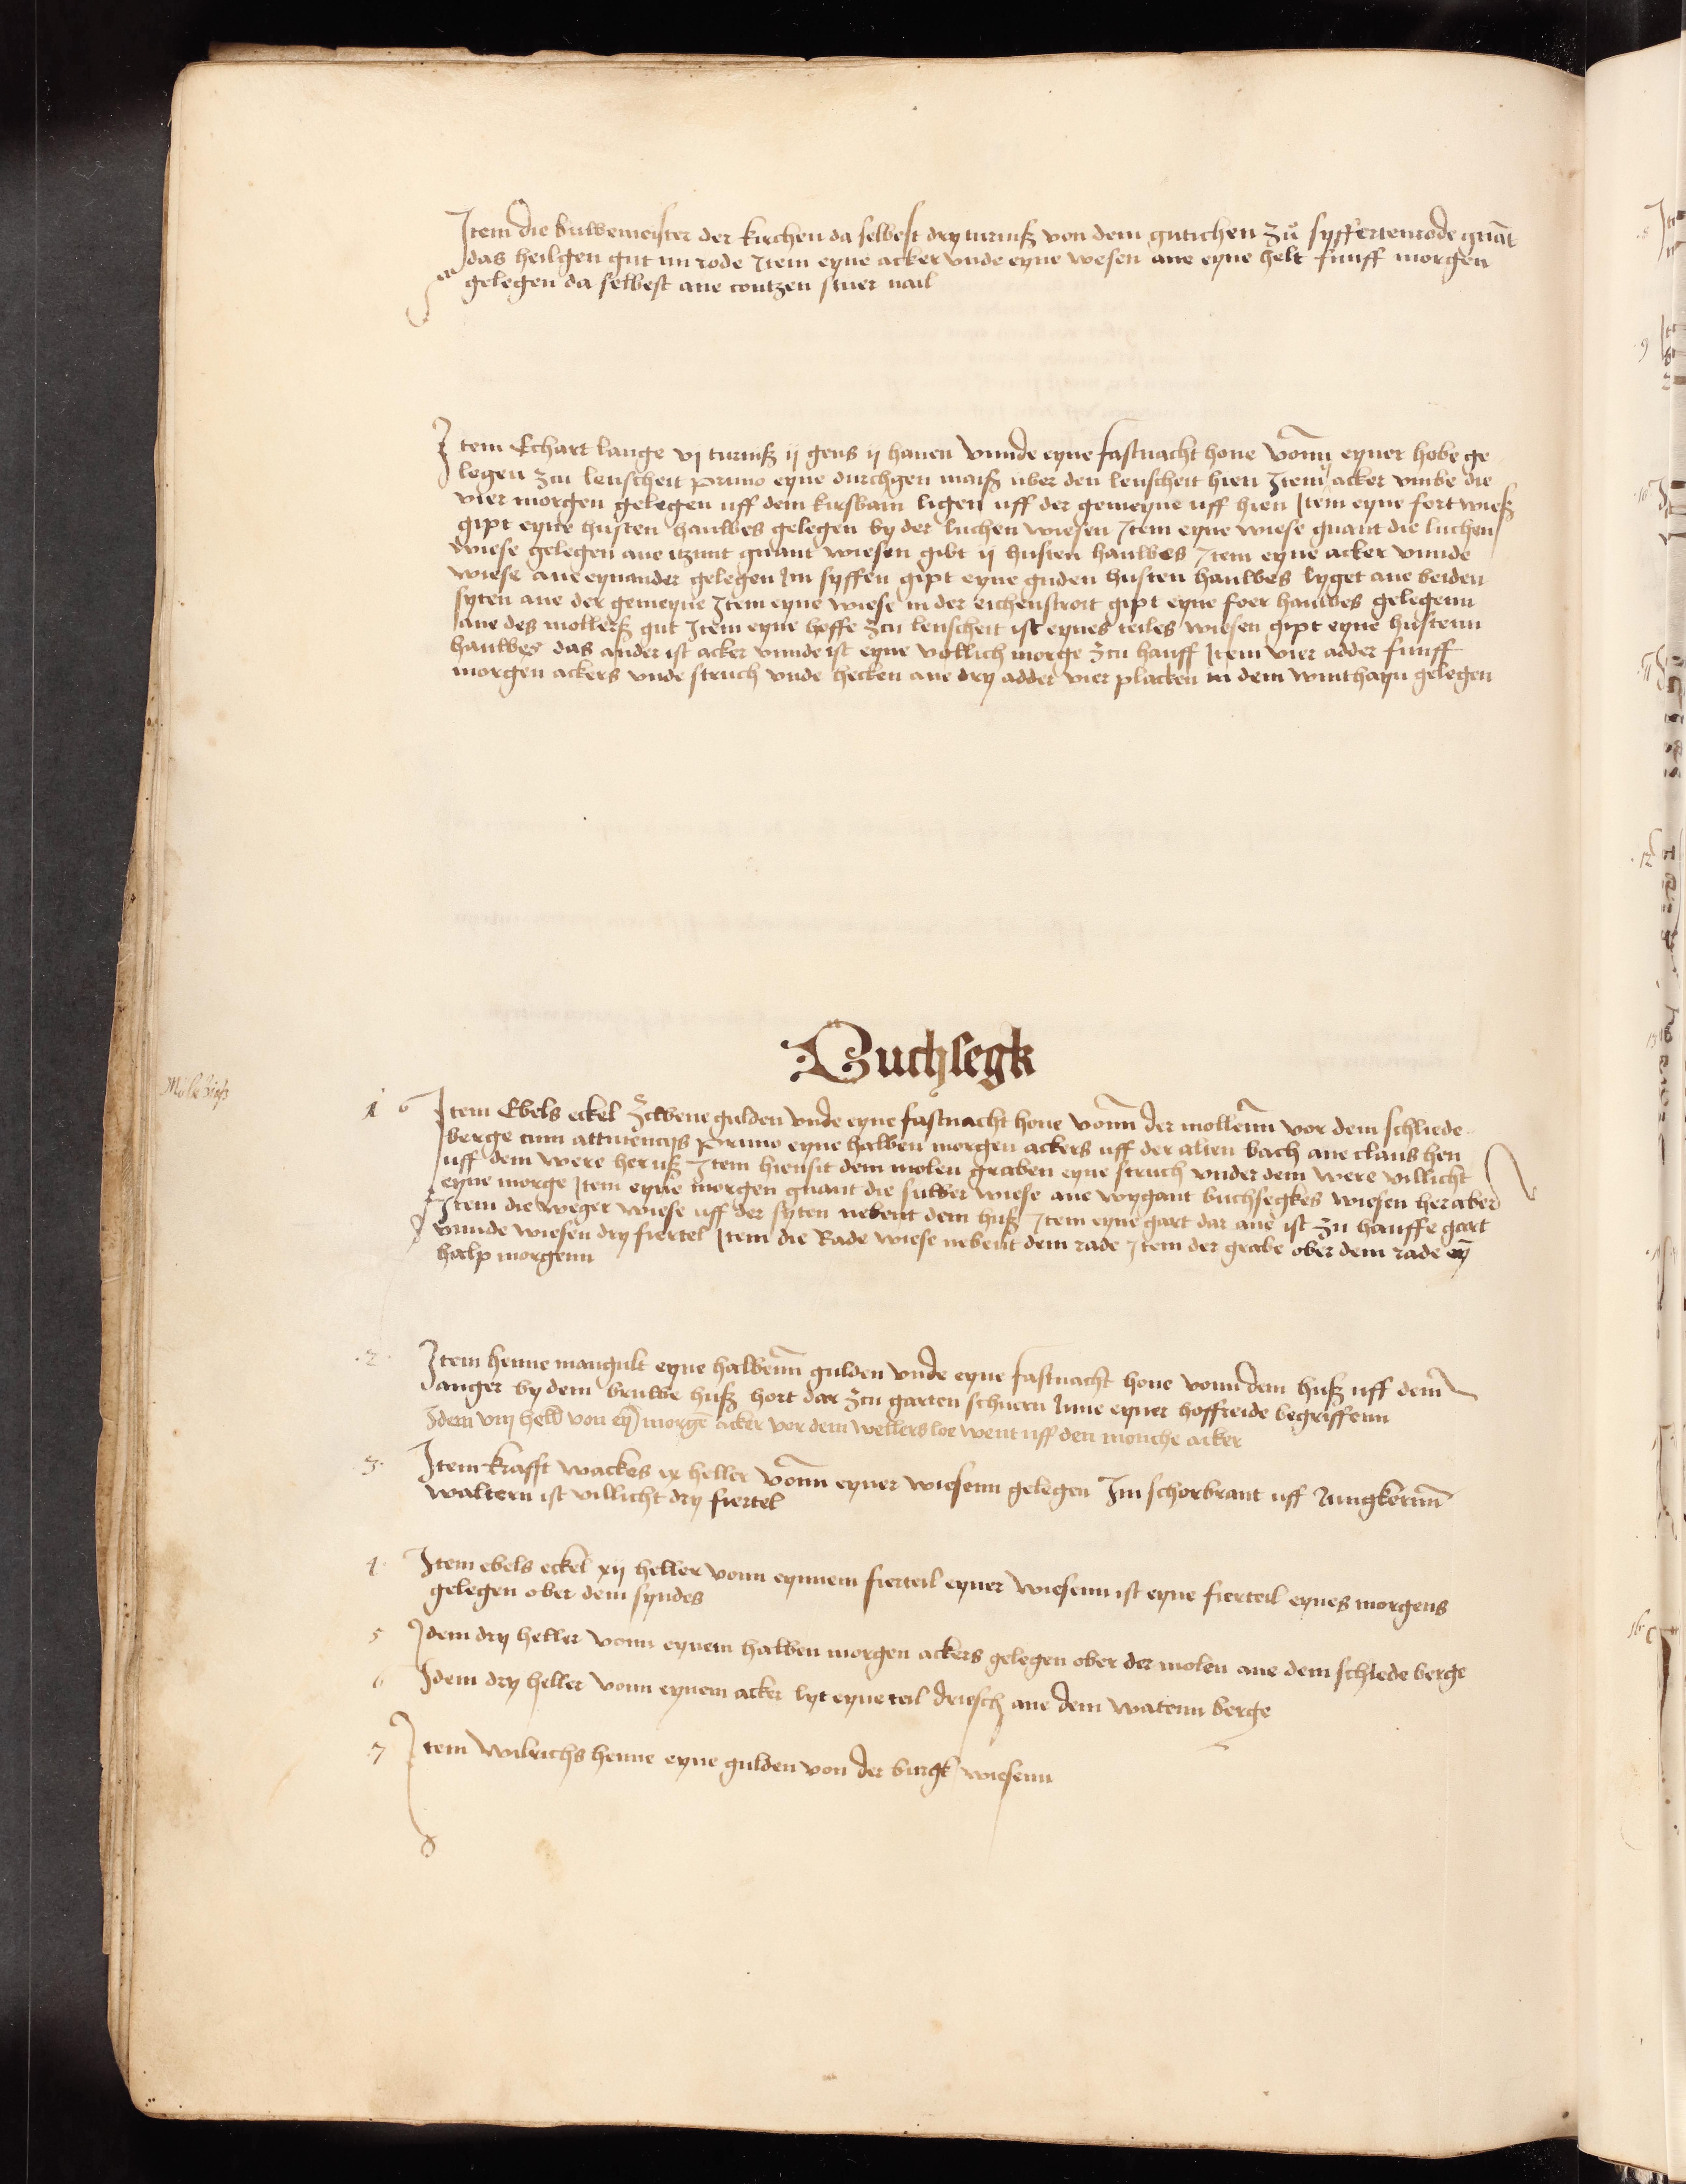 Item die buwemeister der kirchen da selbest dry turniß von dem gutichen zů syffertenrode gnāt
das heilgen gut im rode Item eyne acker vnde eyne wesen ane eyne helt funff morgen
gelegen da selbest ane contzen suer nail
Item Echart lange vj turniß ij gens ij hanen vnnde eyne fastnacht hone vonn eyner hobe ge
legen zcu lenscheit primo eyne durchgen maiß uber den lenscheit hien Item acker vmbe die
vier morgen gelegen uff dem kirsbam ligen uff der gemeyne uff hien Item eyne fort wieß
gipt eyne husten hauwes gelegen by der luchen wiesen Item eyne wiese gnant die luchen
wiese gelegen ane itzunt gnant wiesen gibt ij husten hauwes Item eyne acker vnnde
wiese ane eynander gelegen Im syffen gipt eyne guden husten hauwes lyget ane beiden
syten ane der gemeyne Item eyne wiese in der eichenstroit gipt eyne foer hauwes gelegenn
ane des mollerß gut Item eyne hoffe zcu lenscheit ist eynes teiles wiesen gipt eyne hustenn
hauwes das ander ist acker vnnde ist eyne vollich morge zcu hauff Item vier adder funff
morgen ackers vnde struch vnde hecken ane dry adder vier placken in dem winthayn gelegen
Buchsegk
Mule Zinß
1 Item Ebels eckel zcwene gulden vnde eyne fastnacht hone vonn der mollenn vor dem schliede
berge cum attinencijs primo eyne halben morgen ackers uff der alten bach ane claus hen
uff dem were her uß Item hiensit dem molen graben eyne struch vnder dem were villicht
eyne morge Item eyne morgen gnant die suwer wiese ane wygant buchsegkes wiesen her aber
Item die weger wiese uff der syten nebent dem huß Item eyne gart dar ane ist zu hauffe gart
vnnde wiesen dry fiertel Item die Rade wiese nebent dem rade Item der grabe ober dem rade eȳ
halp morgenn
2 Item henne mangult eyne halbenn gulden vnde eyne fastnacht hone vonn dem huß uff dem
anger by dem bruwe huß hort dar zcu garten schuern Inne eyner hoffreide begriffenn
Idem viij hell von eȳ morgē acker vor dem wellersloe went uff den monche acker
3 Item krafft wackes ix heller vonn eyner wiesenn gelegen Im schorbrant uff Jungkernn
waltern ist villicht dry fiertel
4 Item ebels eckel xij heller vonn eynnem fierteil eyner wiesenn ist eyne fierteil eynes morgens
gelegen ober dem syndes
5 Idem dry heller vonn eynem halben morgen ackers gelegen ober der molen ane dem schlede berge
6 Idem dry heller vonn eynem acker lyt eyne teil driesch ane dem watenn berge
7 Item Wilrichs henne eyne gulden von der burgk wiesenn